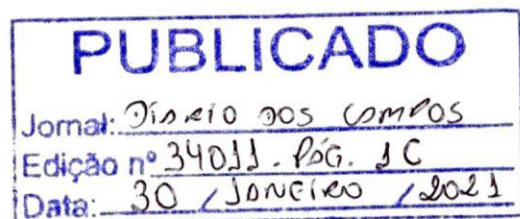 PUBLICADO
Jornal: DIÁRIO DOS CAMPOS
Edição nº 34011. PÁG. 1C
Data: 30 / JANEIRO / 2021